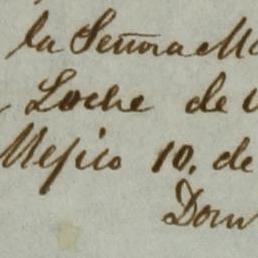 la Señora M
Loche de
Mejico 10. de
Dom